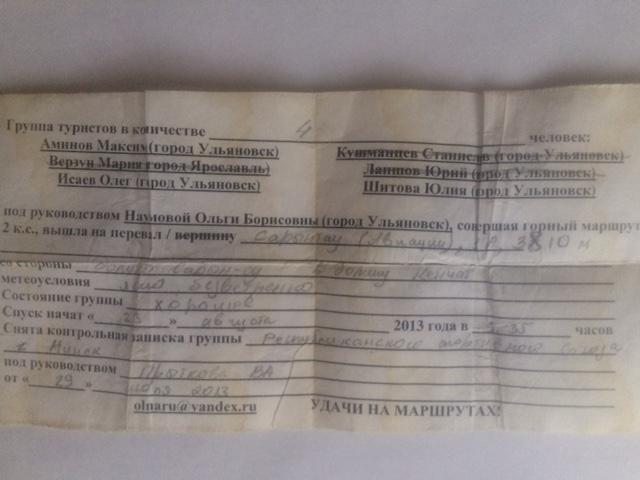 Группа туристов в количестве 4 человек:
Аминов Максим (город Ульяновск) Кушманцев Станислав (город Ульяновск)
Верзун Мария город Ярославль) Лапшов Юрий (город Ульяновск)
Исаев Олег (город Ульяновск) Шитова Юлия (город Ульяновск)
под руководством Наумовой Ольги Борисовны (город Ульяновск), совершая горный маршрут
2 к.с., вышла на перевал / вершину Сарытау (Авиации), 3810 м
со стороны в долину
метеоусловия ясно безветренно
Состояние группы хорошее
Спуск начат « » августа 2013 года в 35 часов
Снята контрольная записка группы Республиканского туристского союза
г Минск
под руководством ВА
от « 29 » июля 2013
olnaru@yandex.ru УДАЧИ НА МАРШРУТАХ!